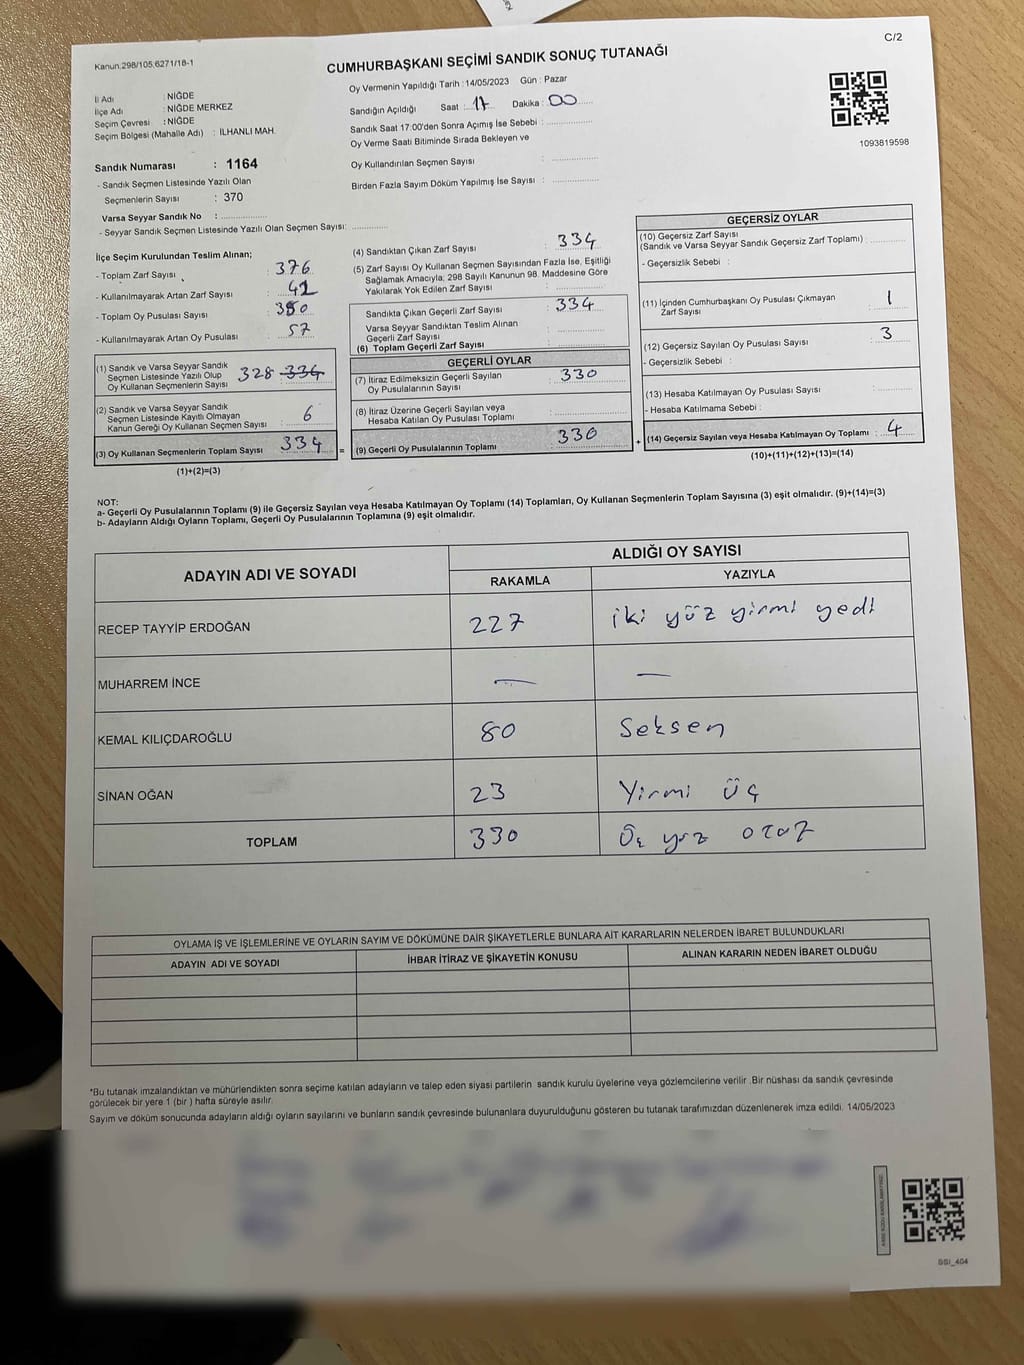 C/2
Kanun.298/105.6271/18-1
CUMHURBAŞKANI SEÇİMİ SANDIK SONUÇ TUTANAĞI
İl Adı : NİĞDE
İlçe Adı : NİĞDE MERKEZ
Seçim Çevresi : NİĞDE
Seçim Bölgesi (Mahalle Adı) : İLHANLI MAH.
Oy Vermenin Yapıldığı Tarih : 14/05/2023 Gün : Pazar
Sandığın Açıldığı Saat : 17 Dakika : 00
Sandık Saat 17:00'den Sonra Açımış İse Sebebi :
Oy Verme Saati Bitiminde Sırada Bekleyen ve
Oy Kullandırılan Seçmen Sayısı :
Birden Fazla Sayım Döküm Yapılmış İse Sayısı :
1093819598
Sandık Numarası : 1164
- Sandık Seçmen Listesinde Yazılı Olan
Seçmenlerin Sayısı : 370
Varsa Seyyar Sandık No :
- Seyyar Sandık Seçmen Listesinde Yazılı Olan Seçmen Sayısı:
İlçe Seçim Kurulundan Teslim Alınan;
- Toplam Zarf Sayısı : 376
- Kullanılmayarak Artan Zarf Sayısı : 42
- Toplam Oy Pusulası Sayısı : 380
- Kullanılmayarak Artan Oy Pusulası : 57
(1) Sandık ve Varsa Seyyar Sandık
Seçmen Listesinde Yazılı Olup
Oy Kullanan Seçmenlerin Sayısı : 328 334
(2) Sandık ve Varsa Seyyar Sandık
Seçmen Listesinde Kayıtlı Olmayan
Kanun Gereği Oy Kullanan Seçmen Sayısı : 6
(3) Oy Kullanan Seçmenlerin Toplam Sayısı : 334
(1)+(2)=(3)
(4) Sandıktan Çıkan Zarf Sayısı : 334
(5) Zarf Sayısı Oy Kullanan Seçmen Sayısından Fazla İse, Eşitliği
Sağlamak Amacıyla; 298 Sayılı Kanunun 98. Maddesine Göre
Yakılarak Yok Edilen Zarf Sayısı :
Sandıkta Çıkan Geçerli Zarf Sayısı : 334
Varsa Seyyar Sandıktan Teslim Alınan
Geçerli Zarf Sayısı :
(6) Toplam Geçerli Zarf Sayısı :
GEÇERLİ OYLAR
(7) İtiraz Edilmeksizin Geçerli Sayılan
Oy Pusulalarının Sayısı : 330
(8) İtiraz Üzerine Geçerli Sayılan veya
Hesaba Katılan Oy Pusulası Toplamı :
= (9) Geçerli Oy Pusulalarının Toplamı : 330 +
GEÇERSİZ OYLAR
(10) Geçersiz Zarf Sayısı
(Sandık ve Varsa Seyyar Sandık Geçersiz Zarf Toplamı) :
- Geçersizlik Sebebi :
(11) İçinden Cumhurbaşkanı Oy Pusulası Çıkmayan
Zarf Sayısı : 1
(12) Geçersiz Sayılan Oy Pusulası Sayısı : 3
- Geçersizlik Sebebi :
(13) Hesaba Katılmayan Oy Pusulası Sayısı :
- Hesaba Katılmama Sebebi :
(14) Geçersiz Sayılan veya Hesaba Katılmayan Oy Toplamı : 4
(10)+(11)+(12)+(13)=(14)
NOT:
a- Geçerli Oy Pusulalarının Toplamı (9) ile Geçersiz Sayılan veya Hesaba Katılmayan Oy Toplamı (14) Toplamları, Oy Kullanan Seçmenlerin Toplam Sayısına (3) eşit olmalıdır. (9)+(14)=(3)
b- Adayların Aldığı Oyların Toplamı, Geçerli Oy Pusulalarının Toplamına (9) eşit olmalıdır.
ADAYIN ADI VE SOYADI ALDIĞI OY SAYISI
RAKAMLA YAZIYLA
RECEP TAYYİP ERDOĞAN 227 iki yüz yirmi yedi
MUHARREM İNCE — —
KEMAL KILIÇDAROĞLU 80 Seksen
SİNAN OĞAN 23 Yirmi üç
TOPLAM 330 Üç yüz otuz
OYLAMA İŞ VE İŞLEMLERİNE VE OYLARIN SAYIM VE DÖKÜMÜNE DAİR ŞİKAYETLERLE BUNLARA AİT KARARLARIN NELERDEN İBARET BULUNDUKLARI
ADAYIN ADI VE SOYADI İHBAR İTİRAZ VE ŞİKAYETİN KONUSU ALINAN KARARIN NEDEN İBARET OLDUĞU
*Bu tutanak imzalandıktan ve mühürlendikten sonra seçime katılan adayların ve talep eden siyasi partilerin sandık kurulu üyelerine veya gözlemcilerine verilir .Bir nüshası da sandık çevresinde
görülecek bir yere 1 (bir ) hafta süreyle asılır.
Sayım ve döküm sonucunda adayların aldığı oyların sayılarını ve bunların sandık çevresinde bulunanlara duyurulduğunu gösteren bu tutanak tarafımızdan düzenlenerek imza edildi. 14/05/2023
SGI_404